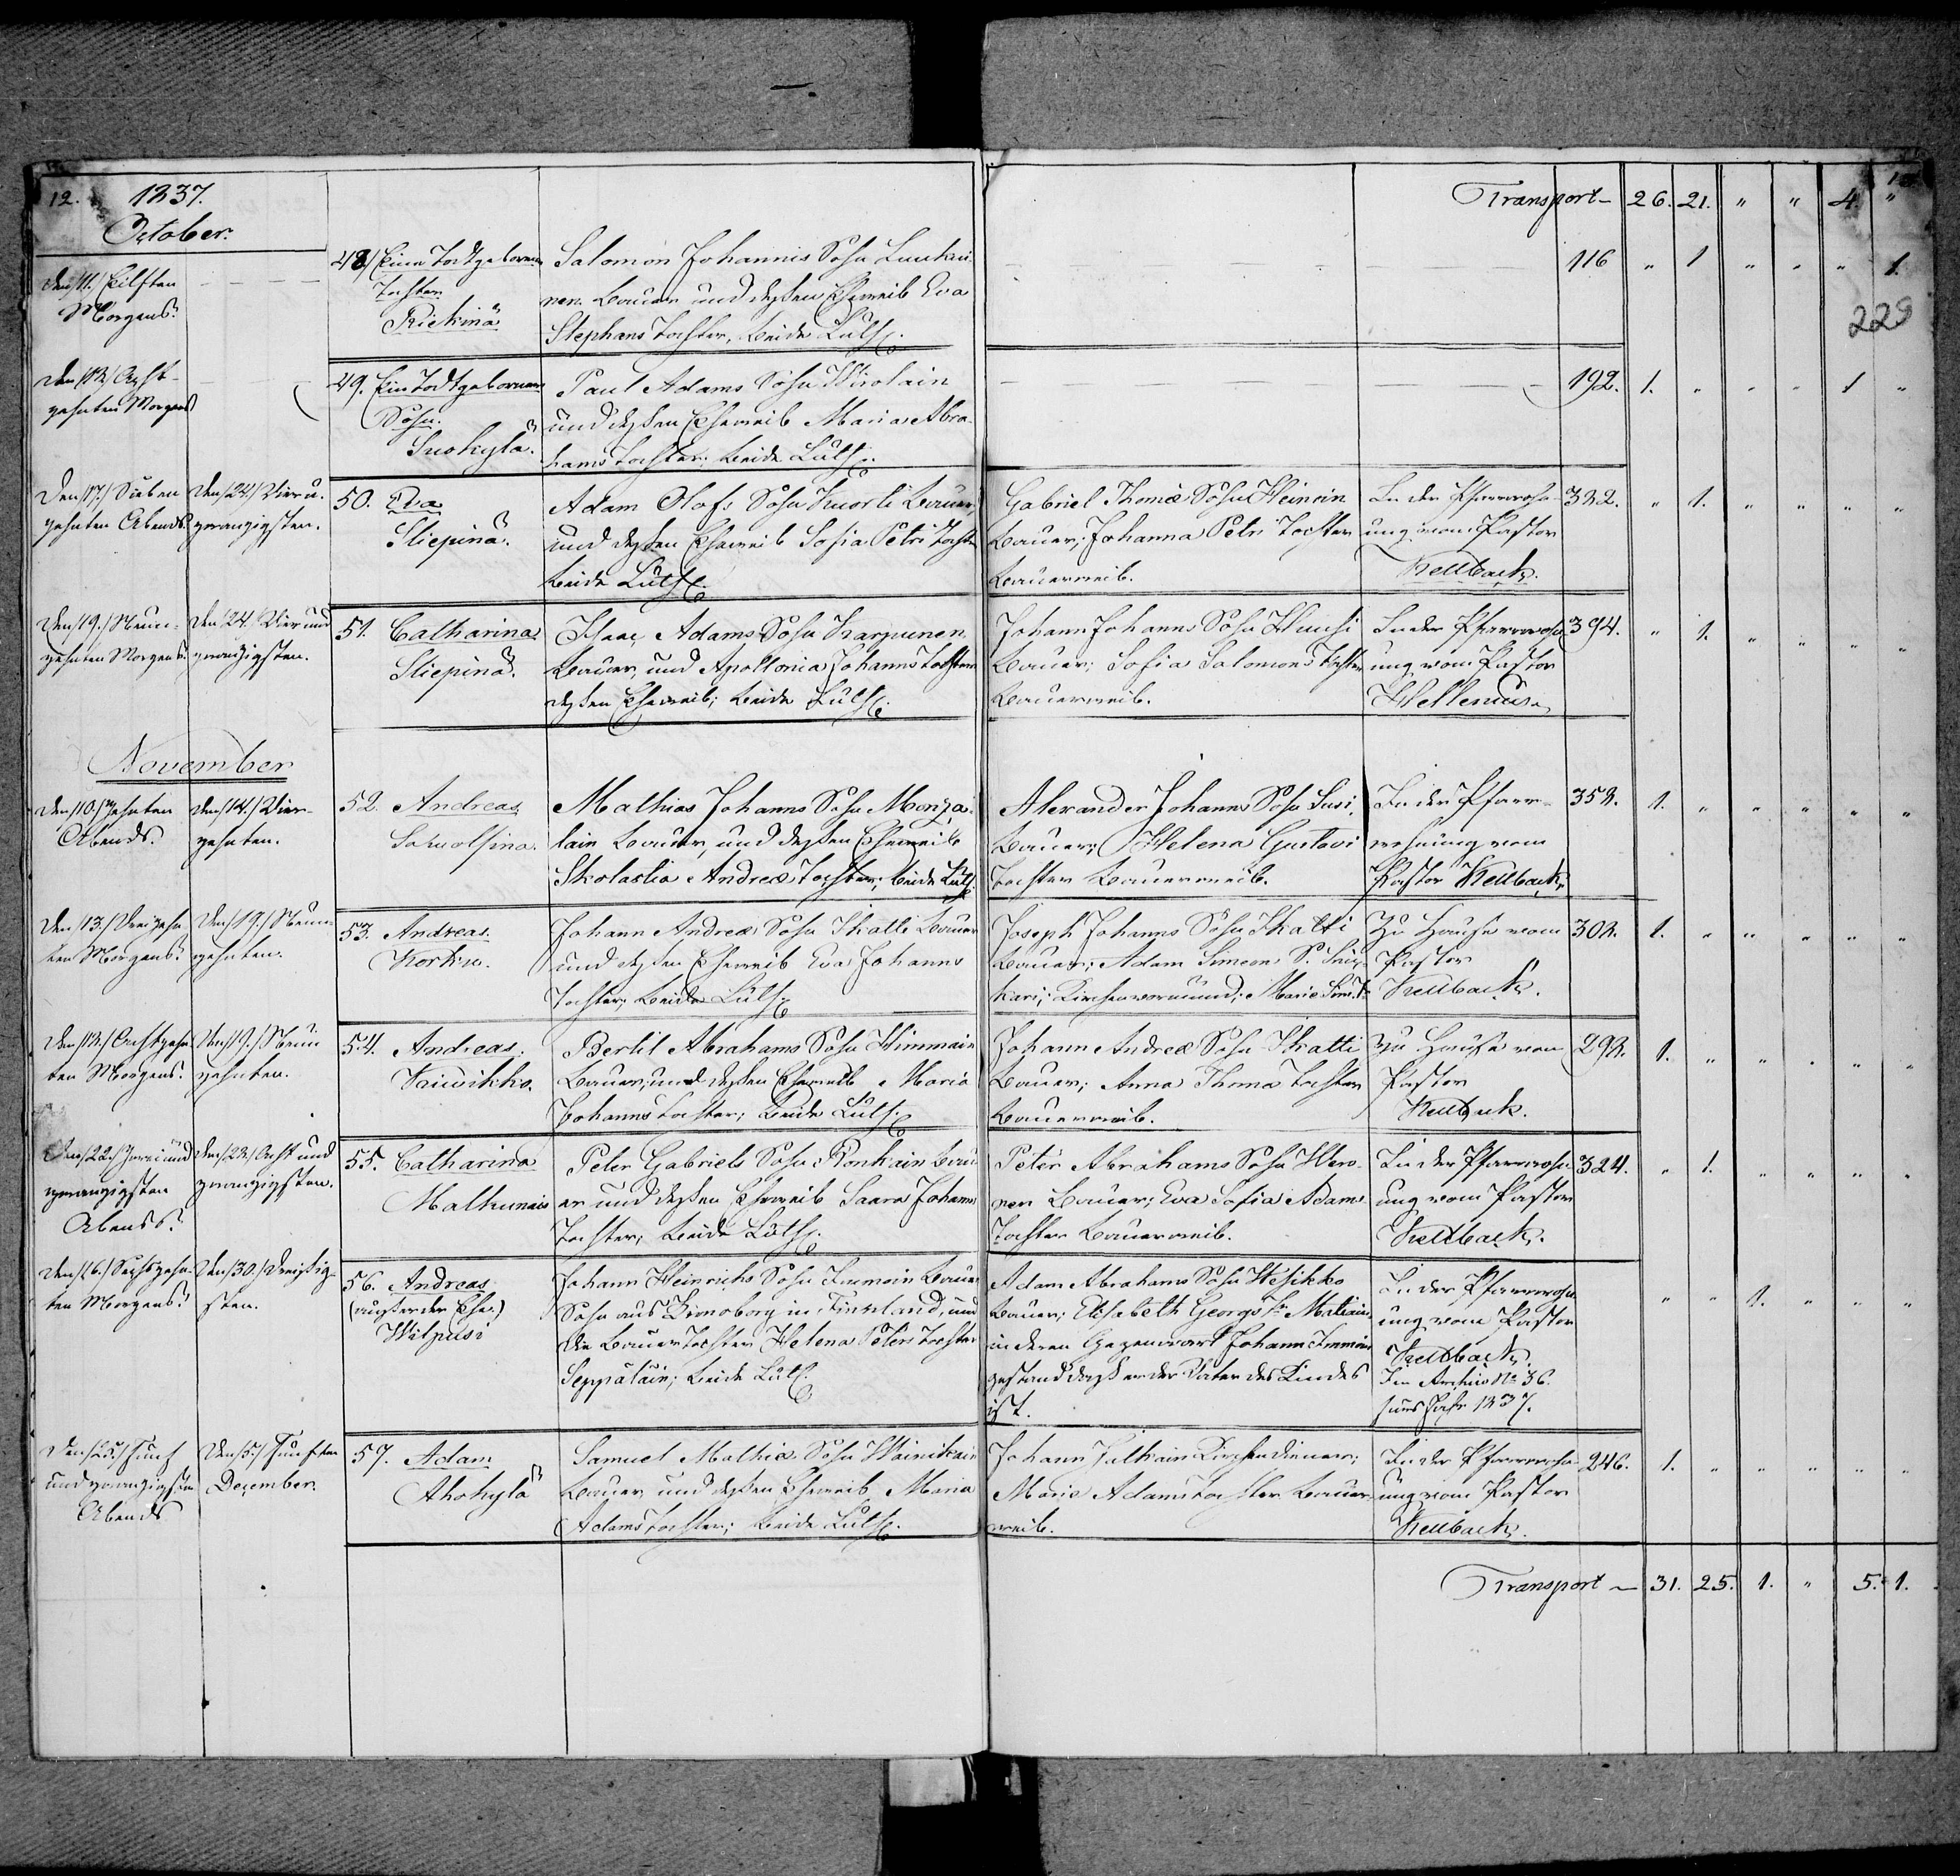 12. 1837.
October.
Transport - 26. 21. " " 4. "
229
den /11./ Eilften
Morgens.
48./ Eine Todtgeborne
Tochter
Rickinä
Salomon Johannis Sohn Luukai-
nen Bauer und deßen Eheweib Eva
Stephans Tochter, beide Luth.
116 " 1 " " " 1.
den /18./ Acht-
zehnten Morgens
49. Ein Todtgeborner
Sohn.
Suokylä.
Paul Adams Sohn Wirolain
und deßen Eheweib Maria Abra-
hams Tochter; beide Luth.
192. 1. " " " 1 "
den /17./ Sieben
zehnten Abends.
den /24./ Vier u.
zwanzigsten.
50. Eva
Sliepinä.
Adam Olofs Sohn Kuorti Bauer,
und deßen Eheweib Sofia Petri Tochter
beide Luth.
Gabriel Thomæ Sohn Heinoin
Bauer; Johanna Petri Tochter
Bauerweib.
In der Pfarrwohn-
ung vom Pastor
Kellback.
332. " 1. " " " "
den /19./ Neun-
zehnten Morgens.
den /24./ Vier und
zwanzigsten.
51. Catharina
Sliepinä.
Isaac Adams Sohn Karpunen
Bauer, und Apollonia Johanns Tochter
deßen Eheweib; beide Luth.
Johann Johanns Sohn Huuhi
Bauer; Sofia Salomons Tochter
Bauerweib.
In der Pfarrwohn
ung vom Pastor
Hellenius.
394. " 1. " " " "
November
den /10./ Zehnten
Abends.
den /14./ Vier-
zehnten.
52. Andreas
Mathias Johanns Sohn Monza-
lain Bauer, und deßen Eheweib
Skolastia Andreæ Tochter; beide Luth.
Alexander Johanns Sohn Susi
Bauer; Helena Gustavi
Tochter Bauerweib.
In der Pfarr-
wohnung vom
Pastor Kellback.
358. 1. " " " " "
den /13./ Dreizehn
ten Morgens.
den /19./ Neun-
zehnten.
53. Andreas.
Korkia.
Johann Andreæ Sohn Skatti Bauer
und deßen Eheweib Eva Johanns
Tochter; beide Luth.
Joseph Johanns Sohn Skatti
Bauer; Adam Simeons S.
kari; Kirchenvormund; Maria Sim. T.
Zu Hause vom
Pastor
Kellback.
308. 1. " " " " "
den /18./ Achtzehn
ten Morgens.
den /19./ Neun
zehnten.
54. Andreas.
Waiwikko.
Bertil Abrahams Sohn Himmain
Bauer, und deßen Eheweib Maria
Johanns Tochter; beide Luth.
Johann Andreæ Sohn Skatti
Bauer; Anna Thoma Tochter
Bauerweib.
Zu Hause vom
Pastor
Kellback.
298. 1. " " " " "
den /22./ Zwei und
zwanzigsten
Abends.
den /28./ Acht und
zwanzigsten.
55. Catharina
Peter Gabriels Sohn Ronkain Bau-
er und deßen Eheweib Saara Johanns
Tochter; beide Luth.
Peter Abrahams Sohn Wero-
nen Bauer; Eva Sofia Adams
Tochter Bauerweib.
In der Pfarrwohn
ung vom Pastor
Kellback.
324. " 1. " " " "
den /16./ Sechszehn-
ten Morgens.
den /30./ Dreißig-
sten.
56. Andreas
(außer der Ehe.)
Wilpusi
Johann Heinrichs Sohn Immoin Bauer
Sohn aus Kronoborg in Finnland, und
die Bauer Tochter Helena Petri Tochter
Seppäläin; beide Luth.
Adam Abrahams Sohn Wesikko
Bauer; Elisabeth Georgs Tr.
in deren Gegenwart Johann Immoin
gestand daß er der Vater des Kindes
ist.
In der Pfarrwohn
ung vom Pastor
Kellback.
Im Archiv No 36.
fürs Jahr 1837.
" " 1. " " "
den /25./ Fünf
und zwanzigsten
Abends
den /5./ Fünften
December.
57. Adam
Ahokylä
Samuel Mathiæ Sohn Wainikain
Bauer und deßen Eheweib Maria
Adams Tochter; beide Luth.
Johann Julkain Kirchendiener;
Maria Adams Tochter Bauer-
weib.
In der Pfarrwohn-
ung vom Pastor
Kellback.
246. 1. " " " " "
Transport - 31. 25. 1. " 5. 1.